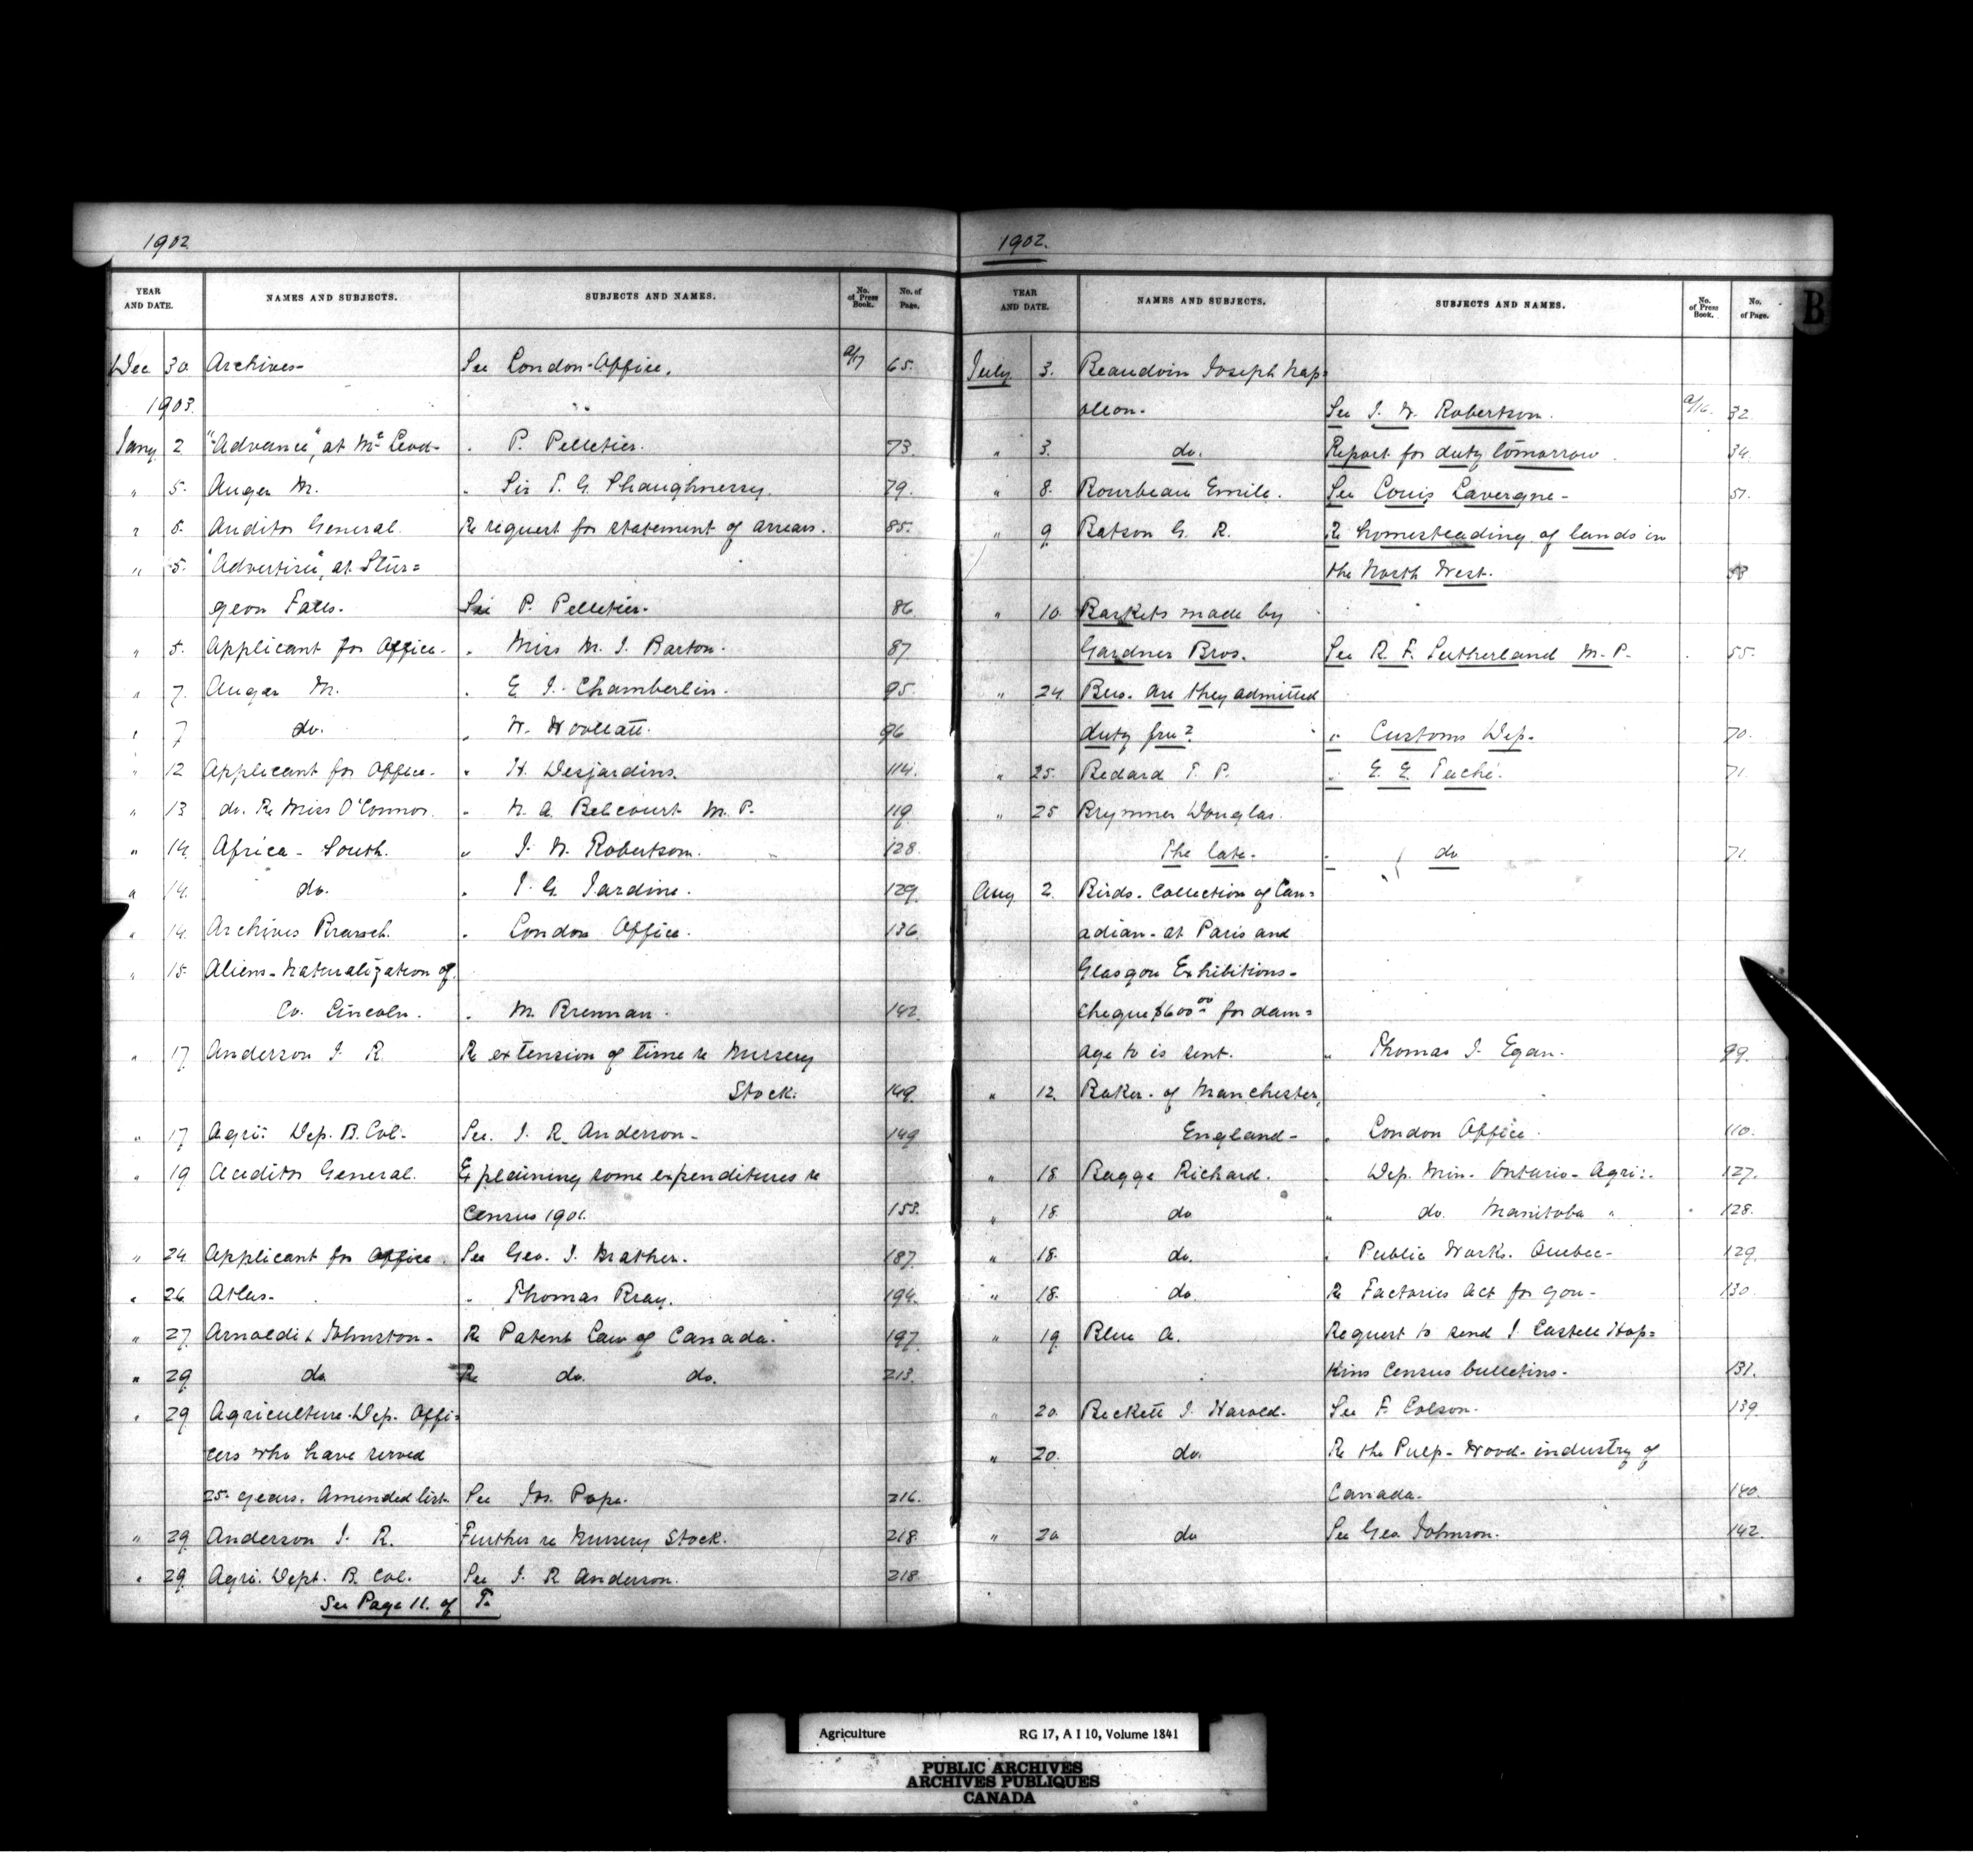 1902.
YEAR AND DATE. NAMES AND SUBJECTS. SUBJECTS AND NAMES. No. of Press Book. No. of Page.
Dec 30 Archives- See London-Office. a/17 65.
1903. "
Jany 2 "Advance", at McLeod- " P. Pelletier. 73.
" 5. Auger M. " Sir T. G. Shaughnessy. 79.
" 5. Auditor General. Re request for statement of arrears. 85.
" 5. "Advertise", at Stur=
geon Falls. See P. Pelletier. 86
" 5. Applicant for Office. " Miss M. J. Barton. 87
" 7. Auger M. " E. J. Chamberlin. 95.
" 7 do. " W. Woollatt. 96
" 12 Applicant for Office. " H. Desjardins. 114.
" 13 do. Re Miss O'Connor. " N. A. Belcourt M. P. 119.
" 14. Africa - South. " J. W. Robertson. 128.
" 14. do. " J. G. Jardine. 129.
" 14. Archives Branch. " London Office. 136.
" 15. Aliens-Naturalization of.
Co. Lincoln. " M. Brennan. 142.
" 17. Anderson J. R. Re extension of time re Nursery
Stock. 149.
" 17. Agri: Dep. B. Col. See. J. R. Anderson- 149
" 19 Auditor General. Explaining some expenditures re
Census 1901. 153.
" 24 Applicant for Office. See Geo. J. Mather. 187.
" 26 Atlas- " Thomas Bray. 194.
" 27. Arnoldi & Johnston- Re Patent Law of Canada. 197.
" 29 do. Re do. do. 213.
" 29 Agriculture. Dep. Offi=
cers who have served
25 years. Amended list. See Jos. Pope. 216.
" 29. Anderson J. R. Further re Nursery Stock. 218.
" 29. Agri. Dept. B. Col. See J. R. Anderson. 218
See Page 11. of T.
1902.
B
YEAR AND DATE. NAMES AND SUBJECTS. SUBJECTS AND NAMES. No. of Press Book. No. of Page.
July 3. Beaudoin Joseph Nap=
oleon. See J. W. Robertson. a/16. 32.
" 3. do. Report for duty tomorrow. 34.
" 8. Bourbeau Emile. See Louis Lavergne- 51.
" 9 Batson G. R. Re homesteading of lands in
the North West. 53
" 10. Baskets made by
Gardner Bros. See R. F. Sutherland M. P. 55.
" 24. Bees. Are they admitted
duty free? " Customs Dep. 70.
" 25. Bedard T. P. " E. E. Taché. 71.
" 25 Brymner Douglas.
The late. " do 71.
Aug 2. Birds. Collection of Can=
adian-at Paris and
Glasgow Exhibitions-
Cheque $600.00 for dam=
age to is sent. " Thomas J. Egan. 99.
" 12. Baker. of Manchester,
England- " London Office. 110.
" 18. Bagge Richard. " Dep. Min. Ontario-Agri:. 127.
" 18. do " do. Manitoba " 128.
" 18. do. " Public Works. Quebec- 129.
" 18. do. Re Factories Act for Gov- 130.
" 19. Blue A. Request to send J. Castell Hop=
kins Census bulletins. 131.
" 20. Beckett J. Harold. See F. Colson. 139.
" 20. do. Re the Pulp-Wood-industry of
Canada. 140.
" 20 do See Geo. Johnson. 142.
Agriculture RG 17, A I 10, Volume 1841
PUBLIC ARCHIVES
ARCHIVES PUBLIQUES
CANADA